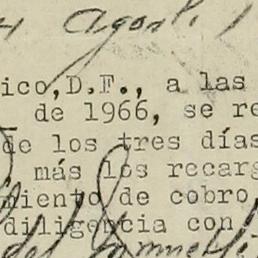 4 Agosto
ico,D.F., a las
de 1966, se re
de los tres días
más los recarg
miento de cobro
diligencia con
del